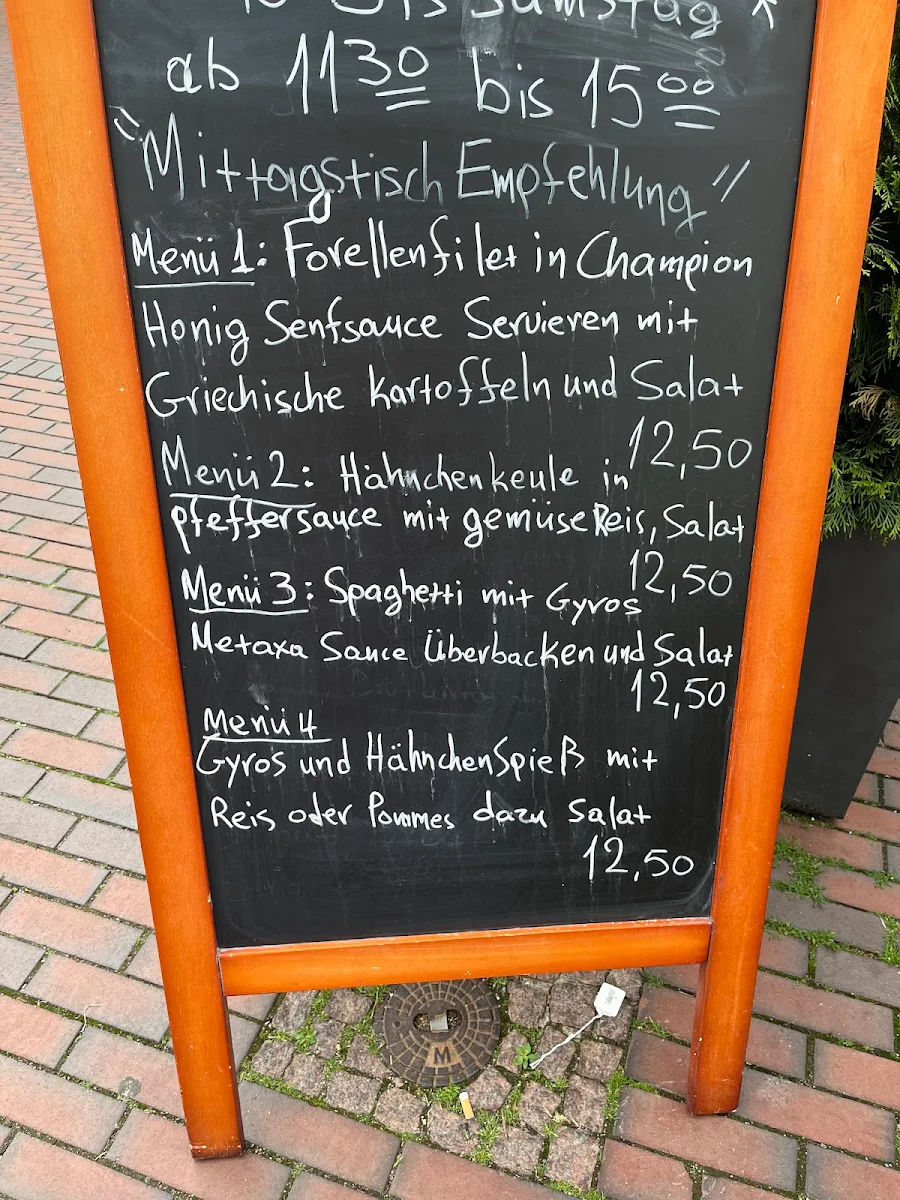 bis Samstag
ab 11 30 bis 15 00
"Mittagstisch Empfehlung"
Menü 1: Forellenfilet in Champion
Honig Senfsauce Servieren mit
Griechische Kartoffeln und Salat
12,50
Menü 2: Hähnchenkeule in
pfeffersauce mit gemüse Reis, Salat
12,50
Menü 3: Spaghetti mit Gyros
Metaxa Sauce Überbacken und Salat
12,50
Menü 4
Gyros und HähnchenSpieß mit
Reis oder Pommes dazu Salat
12,50
M